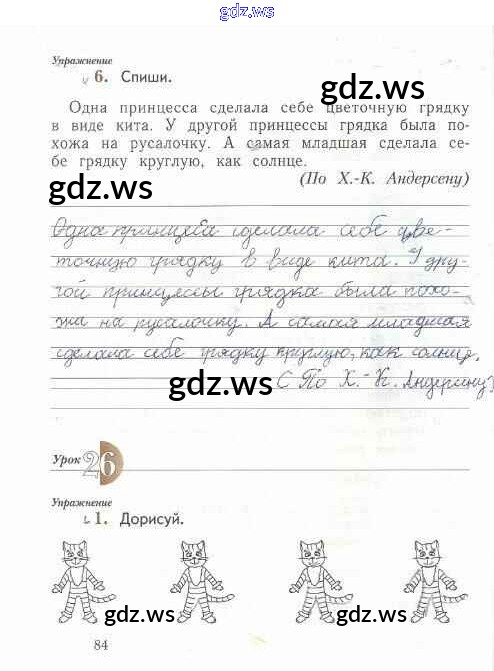 gdz.ws
Упражнение
6. Спиши.
gdz.ws
Одна принцесса сделала себе цветочную грядку
в виде кита. У другой принцессы грядка была по-
хожа на русалочку. А самая младшая сделала се-
бе грядку круглую, как солнце.
gdz.ws
(По Х.-К. Андерсену)
Одна принцесса сделала себе цве-
точную грядку в виде кита. У дру-
гой принцессы грядка была похо-
жа на русалочку. А самая младшая
сделала себе грядку круглую, как солнце.
gdz.ws
(По Х.-К. Андерсену)
Урок 26
Упражнение
1. Дорисуй.
gdz.ws
gdz.ws
84